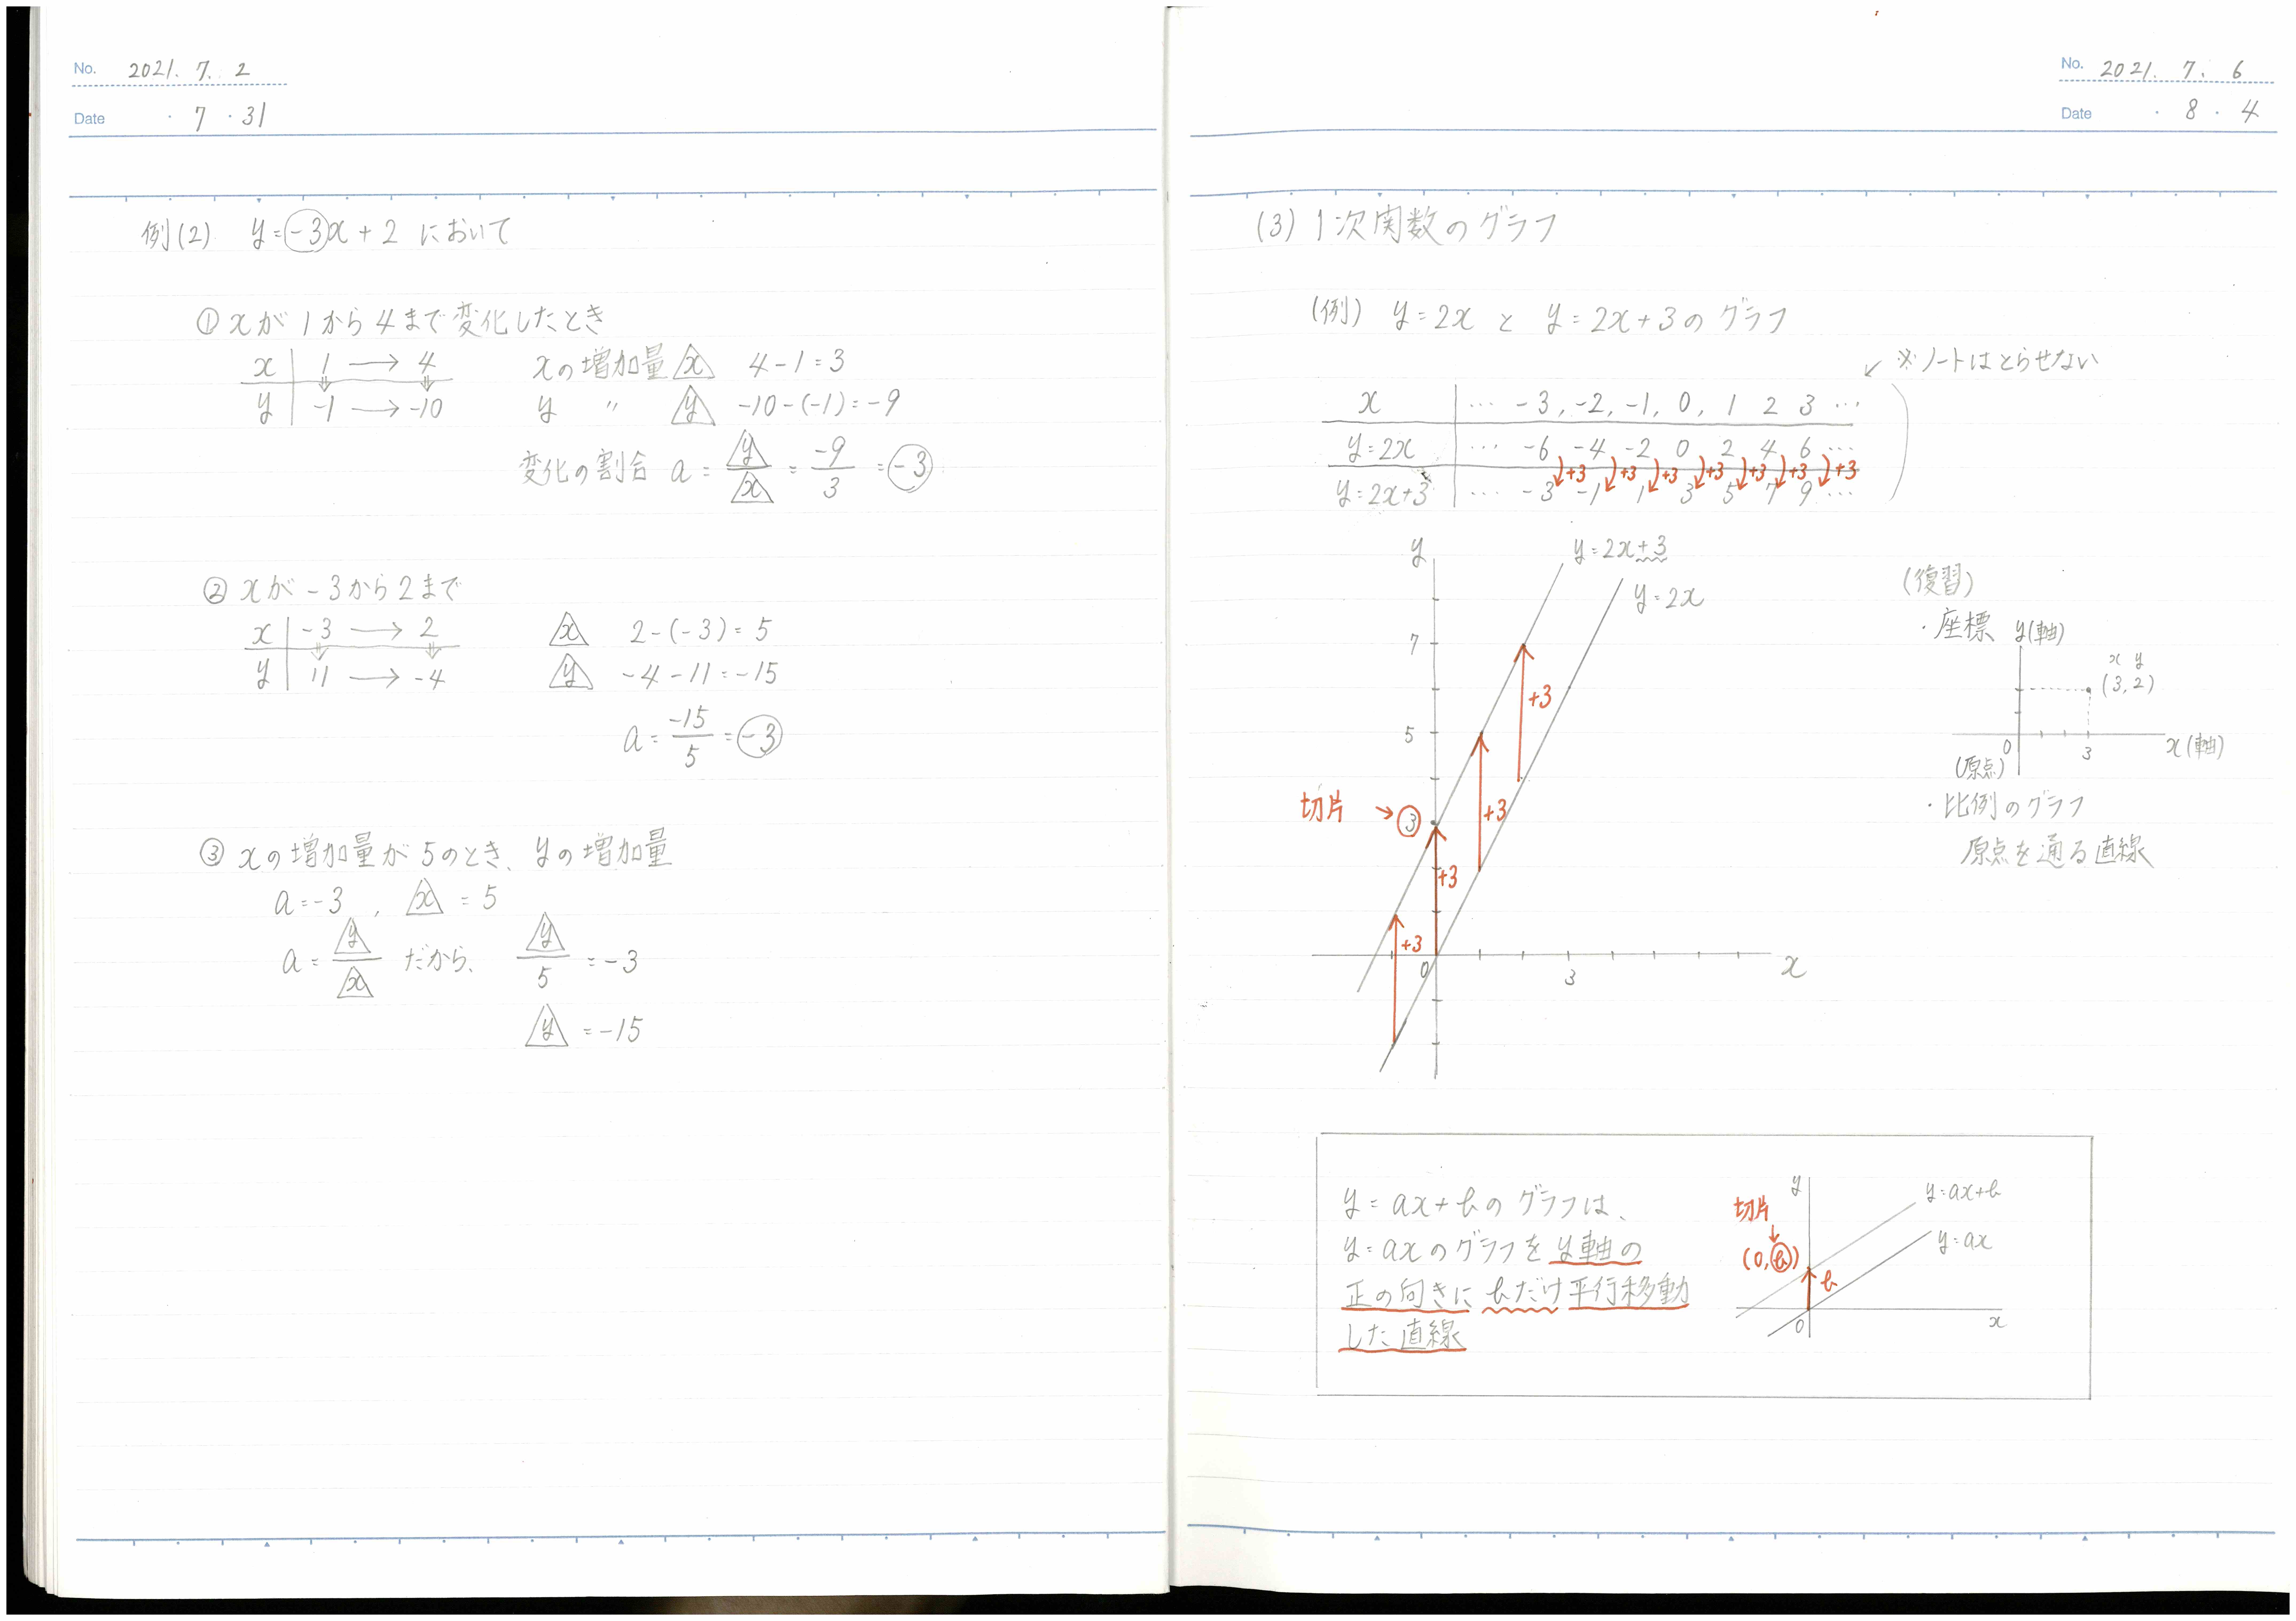 No. 2021. 7. 2
Date ・ 7 ・ 31
例(2) y=-3x+2 において
① xが1から4まで変化したとき
x 1 → 4
y -1 → -10
xの増加量 x 4-1=3
y 〃 y -10-(-1)=-9
変化の割合 a = y/x = -9/3 = -3
② xが-3から2まで
x -3 → 2
y 11 → -4
x 2-(-3)=5
y -4-11=-15
a = -15/5 = -3
③ xの増加量が5のとき、yの増加量
a=-3 , x = 5
a = y/x だから、 y/5 = -3
y = -15
No. 2021. 7. 6
Date ・ 8 ・ 4
(3) 1次関数のグラフ
(例) y=2x と y=2x+3のグラフ
↙ ※ノートはとらせない
x … -3, -2, -1, 0, 1 2 3 …
y=2x … -6 -4 -2 0 2 4 6 …
+3 +3 +3 +3 +3 +3 +3
y=2x+3 … -3 -1 1 3 5 7 9 …
y
y=2x+3
y=2x
7
+3
5
切片 → ③
+3
+3
+3
0
3
x
(復習)
・座標 y(軸)
x y
(3, 2)
0
3
x(軸)
(原点)
・比例のグラフ
原点を通る直線
y=ax+bのグラフは、
y=axのグラフをy軸の
正の向きにbだけ平行移動
した直線
y
切片
↓
(0, b)
b
y=ax+b
y=ax
0
x